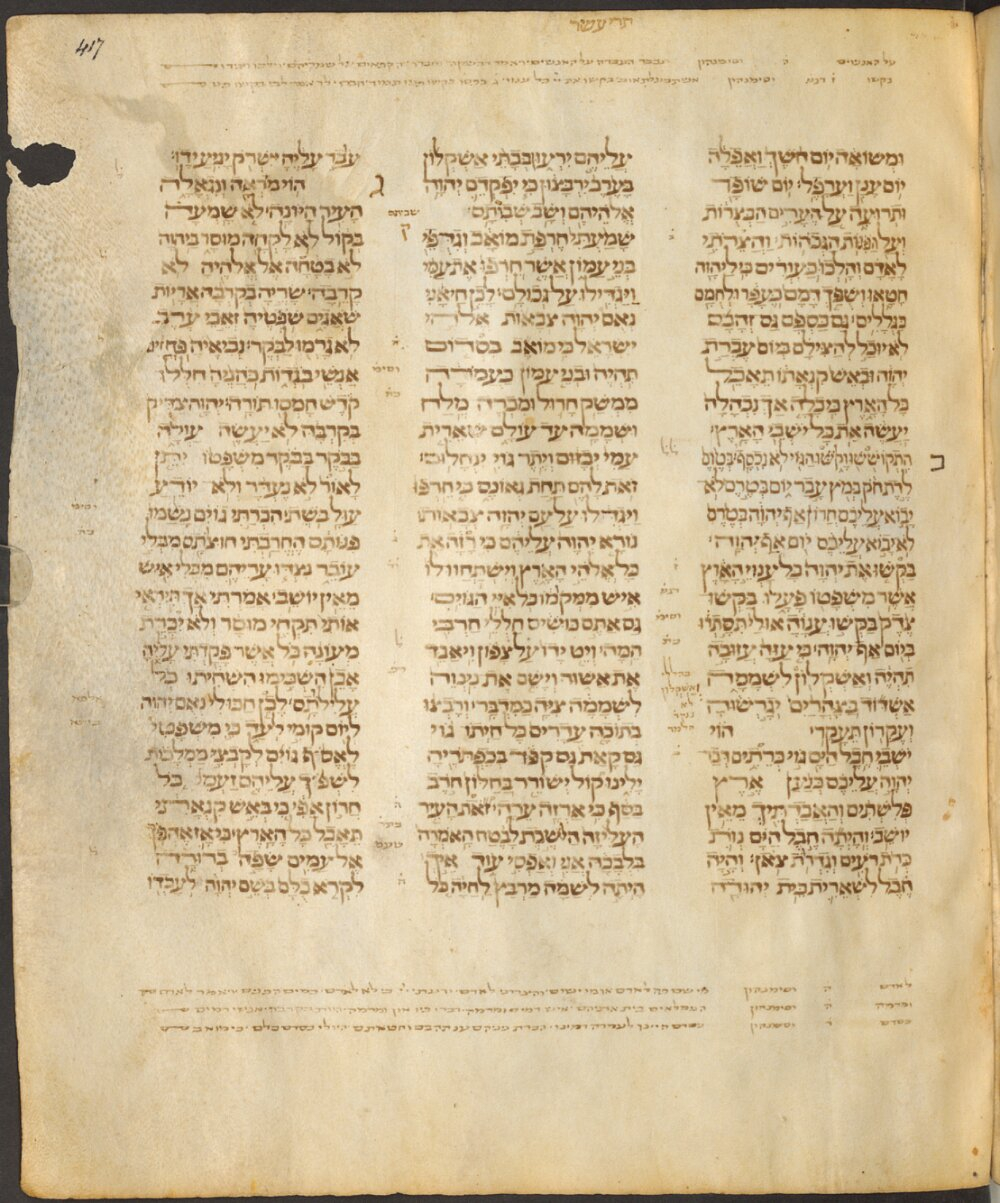 417
תרי עשר
ומשואה יום חשך ואפלה
יום ענן וערפל יום שופר
ותרועה על הערים הבצרות
ועל הפנות הגבהות והצרתי
לאדם והלכו כעורים כי ליהוה
חטאו ושפך דמם כעפר ולחמם
כגללים גם כספם גם זהבם
לא יוכל להצילם ביום עברת
יהוה ובאש קנאתו תאכל
כל הארץ כי כלה אך נבהלה
יעשה את כל ישבי הארץ
התקוששו וקושו הגוי לא נכסף בטרם
לדת חק כמץ עבר יום בטרם לא
יבוא עליכם חרון אף יהוה בטרם
לא יבוא עליכם יום אף יהוה
בקשו את יהוה כל ענוי הארץ
אשר משפטו פעלו בקשו
צדק בקשו ענוה אולי תסתרו
ביום אף יהוה כי עזה עזובה
תהיה ואשקלון לשממה
אשדוד בצהרים יגרשוה
ועקרון תעקר הוי
ישבי חבל הים גוי כרתים דבר
יהוה עליכם כנען ארץ
פלשתים והאבדתיך מאין
יושב והיתה חבל הים נות
כרת רעים וגדרות צאן והיה
חבל לשארית בית יהודה
עליהם ירעון בבתי אשקלון
בערב ירבצון כי יפקדם יהוה
אלהיהם ושב שבותם
שמעתי חרפת מואב וגדפי
בני עמון אשר חרפו את עמי
ויגדילו על גבולם לכן חי אני
נאם יהוה צבאות אלהי
ישראל כי מואב כסדום
תהיה ובני עמון כעמרה
ממשק חרול ומכרה מלח
ושממה עד עולם שארית
עמי יבזום ויתר גוי ינחלום
זאת להם תחת גאונם כי חרפו
ויגדלו על עם יהוה צבאות
נורא יהוה עליהם כי רזה את
כל אלהי הארץ וישתחוו לו
איש ממקמו כל איי הגוים
גם אתם כושים חללי חרבי
המה ויט ידו על צפון ויאבד
את אשור וישם את נינוה
לשממה ציה כמדבר ורבצו
בתוכה עדרים כל חיתו גוי
גם קאת גם קפד בכפתריה
ילינו קול ישורר בחלון חרב
בסף כי ארזה ערה זאת העיר
העליזה היושבת לבטח האמרה
בלבבה אני ואפסי עוד איך
היתה לשמה מרבץ לחיה כל
עבר עליה ישרק יניע ידו
הוי מראה ונגאלה
העיר היונה לא שמעה
בקול לא לקחה מוסר ביהוה
לא בטחה אל אלהיה לא
קרבה שריה בקרבה אריות
שאגים שפטיה זאבי ערב
לא גרמו לבקר נביאיה פחזים
אנשי בגדות כהניה חללו
קדש חמסו תורה יהוה צדיק
בקרבה לא יעשה עולה
בבקר בבקר משפטו יתן
לאור לא נעדר ולא יודע
עול בשת הכרתי גוים נשמו
פנותם החרבתי חוצתם מבלי
עובר נצדו עריהם מבלי איש
מאין יושב אמרתי אך תיראי
אותי תקחי מוסר ולא יכרת
מעונה כל אשר פקדתי עליה
אכן השכימו השחיתו כל
עלילתם לכן חכו לי נאם יהוה
ליום קומי לעד כי משפטי
לאסף גוים לקבצי ממלכות
לשפך עליהם זעמי כל
חרון אפי כי באש קנאתי
תאכל כל הארץ כי אז אהפך
אל עמים שפה ברורה
לקרא כלם בשם יהוה לעבדו